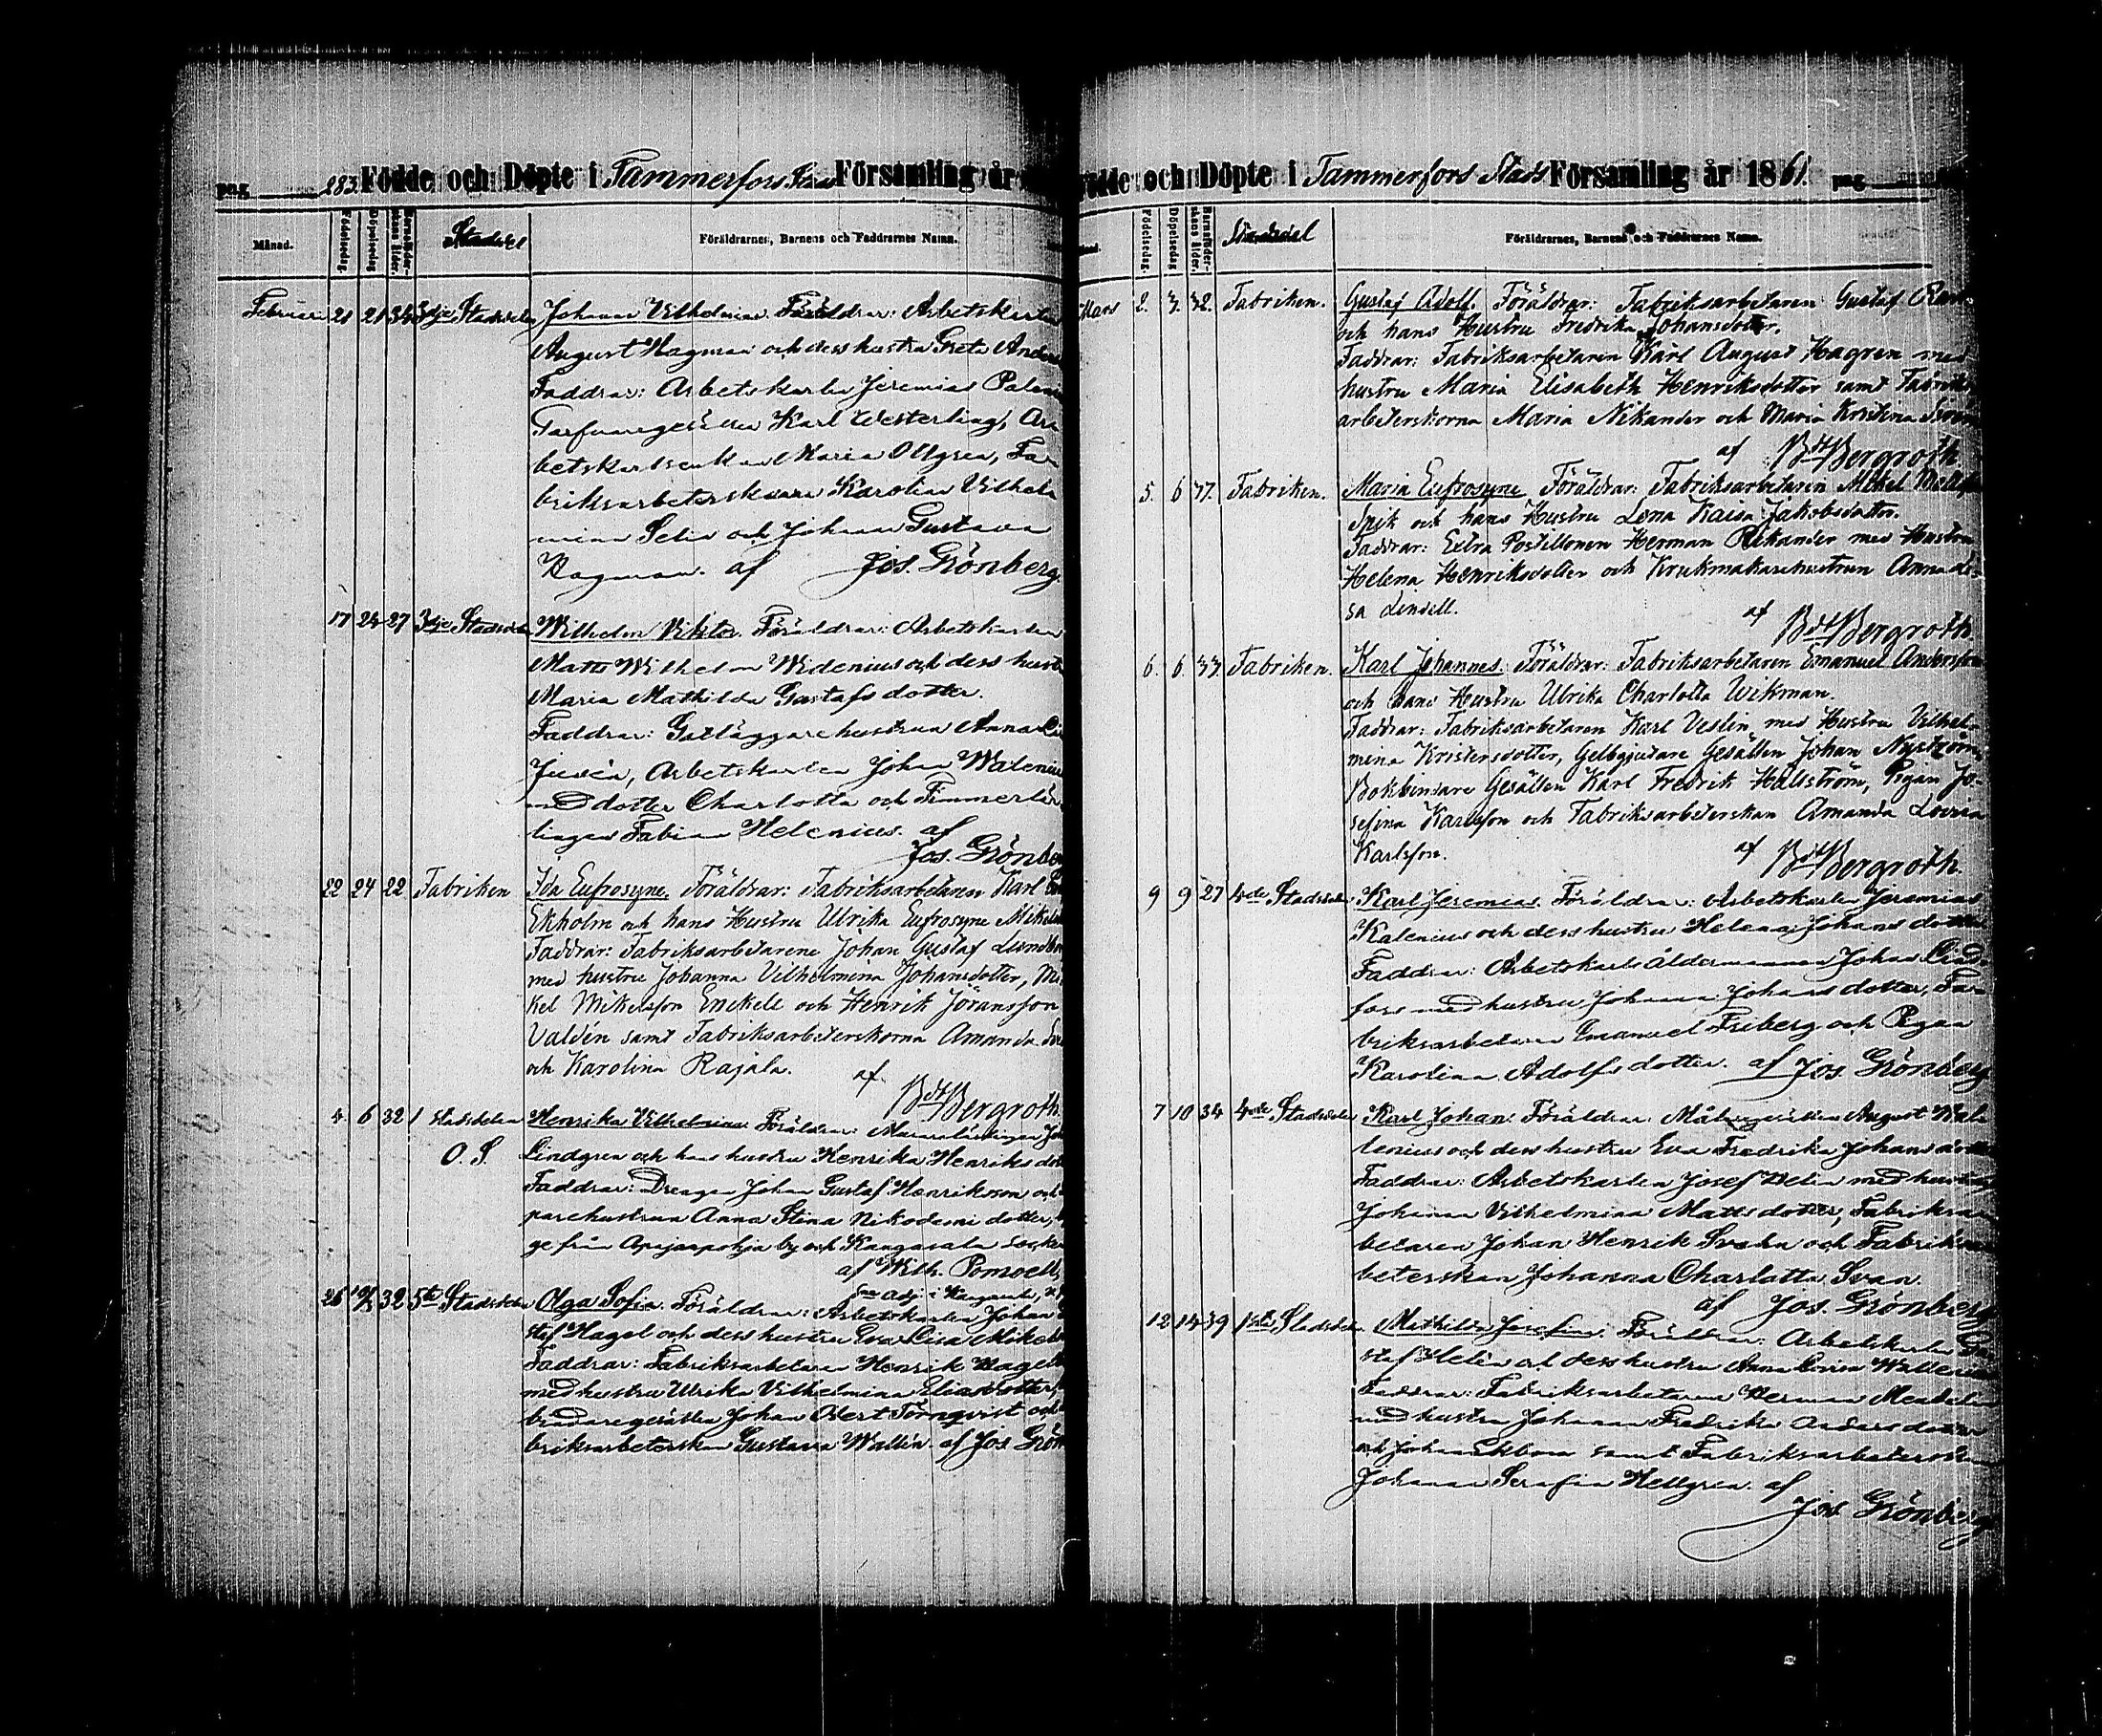 pag 283. Födde och Döpte i Tammerfors Stads Församling år
Månad. Födelsedag. Döpelsedag Barnaföderskans ålder. Stadsdel Föräldrarnes, Barnens och Faddrarnes Namn.
Februari 21 21 34 3dje Stadsdelen Johan Vilhelm Föräldrar: Arbetskarlen
August Hagman och dess hustru Greta
Faddrar: Arbetskarlen Jeremias
Karl Westerling, Ar-
betskarlsenkan Maria Ollgren, Fa-
briksarbeterskorna Karolina Vilhel-
mina Selin och Johana Gustava
Hagman. af Jos. Grönberg.
17 24 27 3dje Stadsdelen Wilhelm Viktor. Föräldrar: Arbetskarlen
Matts Wilhelm Widenius och dess hustru
Maria Mathilda Gustafsdotter.
Faddrar: Gatläggarehustrun Anna
Arbetskarlen Johan Walenius
med dotter Charlotta och Timmerlär-
lingen Fabian Helenius. af
Jos. Grönberg
22 24 22 Fabriken Ida Eufrosyne. Föräldrar: Fabriksarbetaren Karl
Ekholm och hans Hustru Ulrika Eufrosyne
Faddrar: Fabriksarbetarene Johan Gustaf
med hustru Johanna Vilhelmina Johansdotter, Mi-
kel Mikelsson Enckell och Henrik Jöransson
Valdén samt Fabriksarbeterskorna Amanda
och Karolina Rajala.
af Bdt Bergroth.
4 6 32 1 stadsdelen Henrika Vilhelmina Föräldrar:
O. S. Lindgren och hans hustru Henrika Henriksdotter
Faddrar: Drengen Johan Gustaf Henriksson och
parehustrun Anna Stina Nikodemidotter,
ge från by och Kangasala socken
af Wilh. Pomoell,
adj. i Kangasala
26 32 5te Stadsdelen Olga Sofia. Föräldrar: Arbetskarlen Johan
staf Hagel och dess hustru Eva Lisa
Faddrar: Fabriksarbetaren Henrik Hagel
med hustru Ulrika Vilhelmina
gesällen Johan Törnqvist och
briksarbeterskan Gustava Wallin. af Jos. Grön
Födde och Döpte i Tammerfors Stads Församling år 1861. pag
Födelsedag. Döpelsedag Barnaföderskans ålder. Stadsdel Föräldrarnes, Barnens och Faddrarnes Namn.
Mars 2. 3. 32. Fabriken. Gustaf Adolf. Föräldrar: Fabriksarbetaren Gustaf
och hans Hustru Fredrika Johansdotter.
Faddrar: Fabriksarbetaren Karl August Hagren med
hustru Maria Elisabeth Henriksdotter samt Fabriks-
arbeterskorna Maria Nikander och Maria Kristina
af Bdt Bergroth
5. 6 37. Fabriken. Maria Eufrosyne Föräldrar: Fabriksarbetaren Mikel
Spik och hans Hustru Lena Kaisa Jakobsdotter.
Faddrar: Extra Postillonen Herman Rikander med Hustru
Helena Henriksdotter och Krukmakarehustrun Anna Li-
sa Lindell. af Bdt Bergroth
6. 6. 33. Fabriken. Karl Johannes. Föräldrar: Fabriksarbetaren Emanuel Andersson
och hans Hustru Ulrika Charlotta Wikman.
Faddrar: Fabriksarbetaren Karl Vestin med Hustru Vilhel-
mina Kristersdotter, Gelbgjutare Gesällen Johan Nyström,
Bokbindare Gesällen Karl Fredrik Hällström, Pigan Jo-
sefina Karlsson och Fabriksarbeterskan Amanda Lovisa
Karlsson. af Bdt Bergroth.
9 9 27 4de Stadsdelen Karl Jeremias. Föräldrar: Arbetskarlen Jeremias
Kalenius och dess hustru Helena Johansdotter
Faddrar: Arbetskarls Åldermannen Johan Lind-
fors med hustru Johanna Johansdotter, Fa-
briksarbetaren Emanuel Friberg och Pigan
Karolina Adolfsdotter. af Jos. Grönberg
7 10 34 4de Stadsdelen Karl Johan. Föräldrar: Målaregesällen August
lenius och dess hustru Eva Fredrika Johansdotter
Faddrar: Arbetskarlen Josef Helin med hustru
Johanna Vilhelmina Mattsdotter, Fabriksar-
betaren Johan Henrik Svahn och Fabriksar-
beterskan Johanna Charlotta Svan.
af Jos. Grönberg
12 14 39 1sta Stadsdelen Mathilda Josefina. Föräldrar: Arbetskarlen Gu-
staf Helin och dess hustru Anna Lovisa
Faddrar: Fabriksarbetarne Herman
med hustru Johanna Fredrika Andersdotter
och Johan Ekbom samt Fabriksarbeterskan
Johanna Serafia Hellgren. af
Jos Grönberg